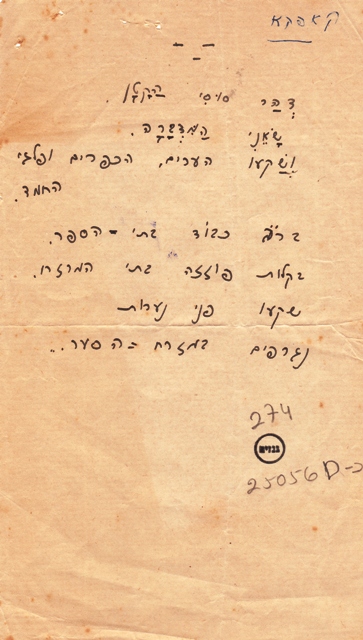 קאפקא
דְּהַר סוסִי הַקָּטָן.
שָׂאֵנִי הַמִּדְבָּרָה.
וְשָׁקְעוּ הערים, הכפרים ופלגי
החמד.
ברֹב כבוד בתי = הספר.
בקלות פוזזה בתי המרזח.
שקעו פני נערות
נגרפים במזרח = ה סער...
274
גנזים
25056 D-כ